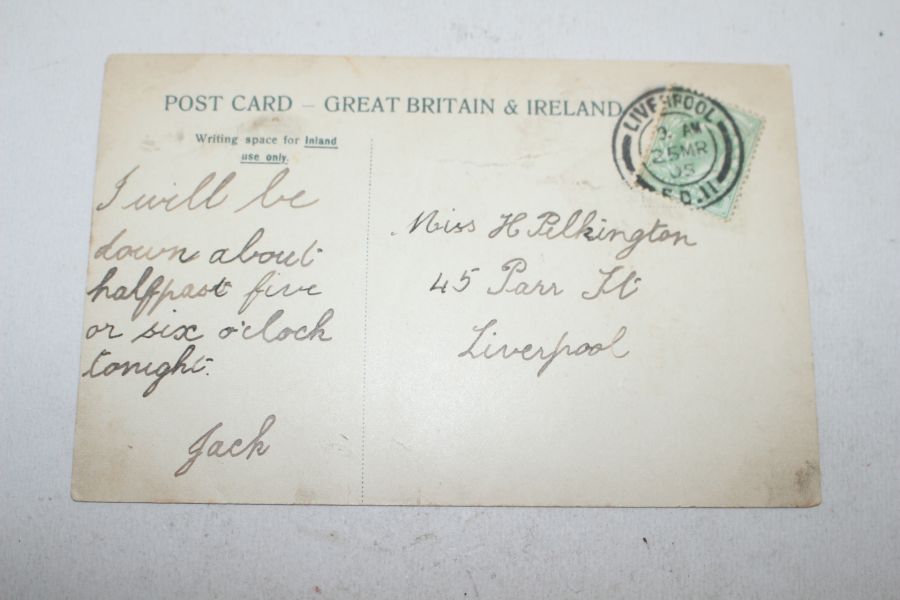 POST CARD – GREAT BRITAIN & IRELAND
Writing space for Inland
use only.
I will be
down about
halfpast five
or six o'clock
tonight.
Jack
LIVERPOOL
AM
25 MR
05
Miss H Pilkington
45 Parr St
Liverpool